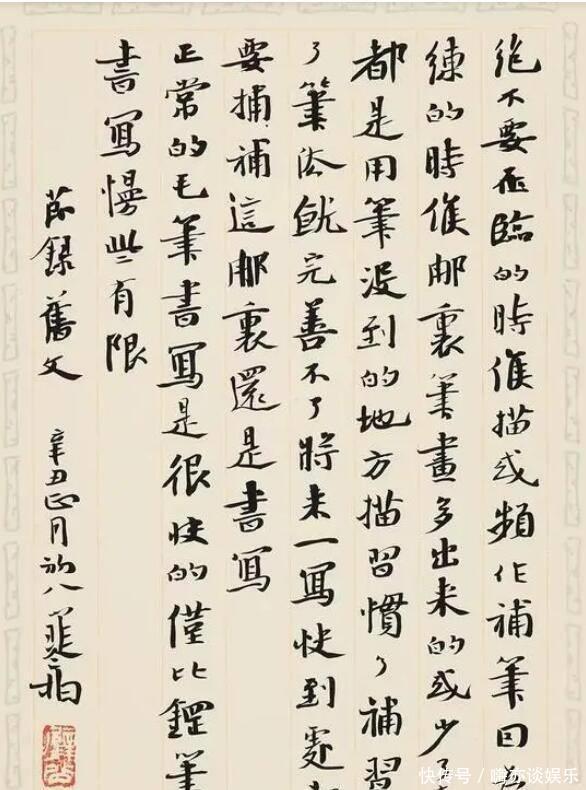 絶不要在臨的時候描或頻作補筆因
練的時候那裏筆畫多出来的或少了
都是用筆没到的地方描習慣了補習
了筆法就完善不了將来一寫快到處
要補這那裏還是書寫
正常的毛筆書寫是很快的僅比鋼筆
書寫慢些有限
節録舊文 辛丑正月初八
快传号／唯亦谈娱乐